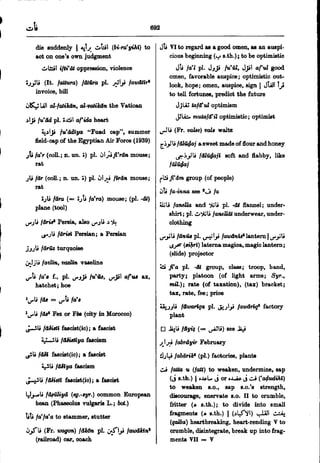 فات
692
dis suddenly | برأيه (bi-ra'yihi) to
act on one's own judgment
افتئات iftī'āt oppression, violence
فاتورة (It. fattura) fātūra pl. فواتير fawātīr²
invoice, bill
الفاتيكان al-fatikān, al-vatikān the Vatican
فؤاد fu'ād pl. افئدة af'ida heart
فؤادية fu'ādīya "Fuad cap", summer
field-cap of the Egyptian Air Force (1939)
فأر fa'r (coll.; n. un. ة) pl. فئران fi'rān mouse;
rat
فار fār (coll.; n. un. ة) pl. فيران fīrān mouse;
rat
فارة fāra (= فأرة fa'ra) mouse; (pl. -āt)
plane (tool)
فارس fāris² Persia, also بلاد فارس
فارسي fārisī Persian; a Persian
فاروز fārūz turquoise
فازلين fazlīn, vazlīn vaseline
فأس fa's f., pl. فؤوس fu'ūs, افؤس af'us ax,
hatchet; hoe
¹فاس fās = فأس fa's
²فاس fās² Fez or Fès (city in Morocco)
فاشستي fāšistī fascist(ic); a fascist
فاشستية fāšistīya fascism
فاشي fāšī fascist(ic); a fascist
فاشية fāšīya fascism
فاشيستي fāšistī fascist(ic); a fascist
فاصوليا fāṣūliyā (eg.-syr.) common European
bean (Phaseolus vulgaris L.; bot.)
فأفأ fa'fa'a to stammer, stutter
فاكون (Fr. wagon) fākōn pl. فواكين fawākīn²
(railroad) car, coach
فأل VI to regard as a good omen, as an auspi-
cious beginning (ب s.th.); to be optimistic
فأل fa'l pl. فؤول fu'ūl, افؤل af'ul good
omen, favorable auspice; optimistic out-
look, hope; omen, auspice, sign | قرأ الفأل
to tell fortunes, predict the future
تفاؤل tafā'ul optimism
متفائل mutafā'il optimistic; optimist
فالس (Fr. valse) vals waltz
فالوذج fālūḏaj a sweet made of flour and honey
فالوذجي fālūḏajī soft and flabby, like
fālūḏaj
فئام fi'ām group (of people)
فان fa-inna see ²ف fa
فانلة fanella and فانلا pl. -āt flannel; under-
shirt; pl. فانلات fanellāt underwear, under-
clothing
فانوس fānūs pl. فوانيس fawānīs² lantern | فانوس
سحري (siḥrī) laterna magica, magic lantern;
(slide) projector
فئة fi'a pl. -āt group, class; troop, band,
party; platoon (of light arms; Syr.,
mil.); rate (of taxation), (tax) bracket;
tax, rate, fee; price
فاوريقة fāwarīqa pl. فواريق fawārīq² factory
plant
فايظ fāyiẓ (= فائض) see فيض
فبراير fabrāyir February
فبارك fabārik² (pl.) factories, plants
فت fatta u (fatt) to weaken, undermine, sap
(في s.th.) | فت في عضده or في ساعده ('aḍudihi)
to weaken s.o., sap s.o.'s strength,
discourage, enervate s.o. II to crumble,
fritter (ه s.th.); to divide into small
fragments (ه s.th.) | فتت الاكباد
(galās) heartbreaking, heart-rending V to
crumble, disintegrate, break up into frag-
ments VII = V